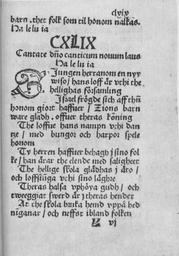 clviv
barn. thet folk som til honom nalkas.
Ha le lu ia
CXLIX
Cantate dño canticum nouum laus
Ha le lu ia
SJungen herranom en nyy
wiso/ hans loff är vthi the
helighas församling
Jsrael frögde sich aff thñ
honom giort haffuer/ Zions barn
ware gladh. offuer theras köning
The loffue hans nampn vthi dan
tze/ med bungor och harpor spele
honom
Ty herren haffuer behagh j sino fol
ke/ han ärar the elende med salighet
The helige skola glädhias j äro/
och loffsiuga vthi sino läghre
Theras halsa vphöya gudh/ och
tweeggiat swerd är j theras hender
At the skola binka hemd vppå hed
ninganar/ och neffst ibland folken
vj